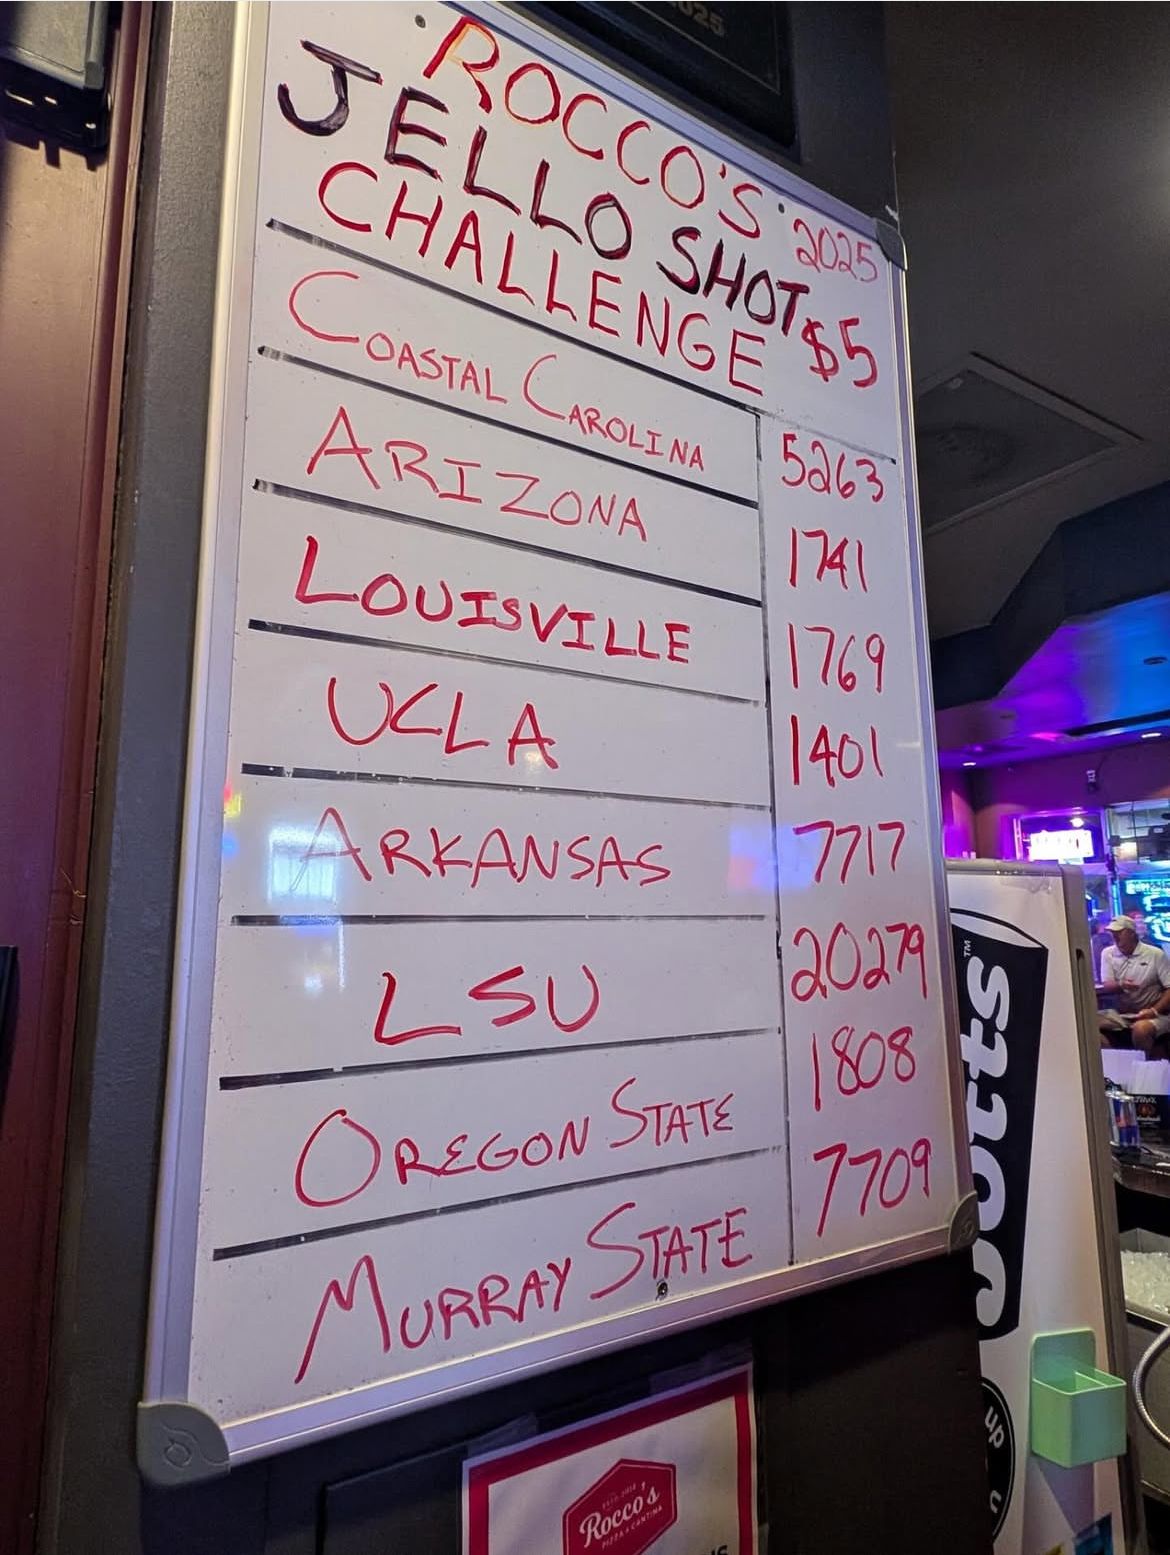 2025
ROCCO'S 2025
JELLO SHOT
CHALLENGE $5
COASTAL CAROLINA 5263
ARIZONA 1741
LOUISVILLE 1769
UCLA 1401
ARKANSAS 7717
LSU 20279
OREGON STATE 1808
MURRAY STATE 7709
Jotts™
up
Rocco's
PIZZA & CANTINA